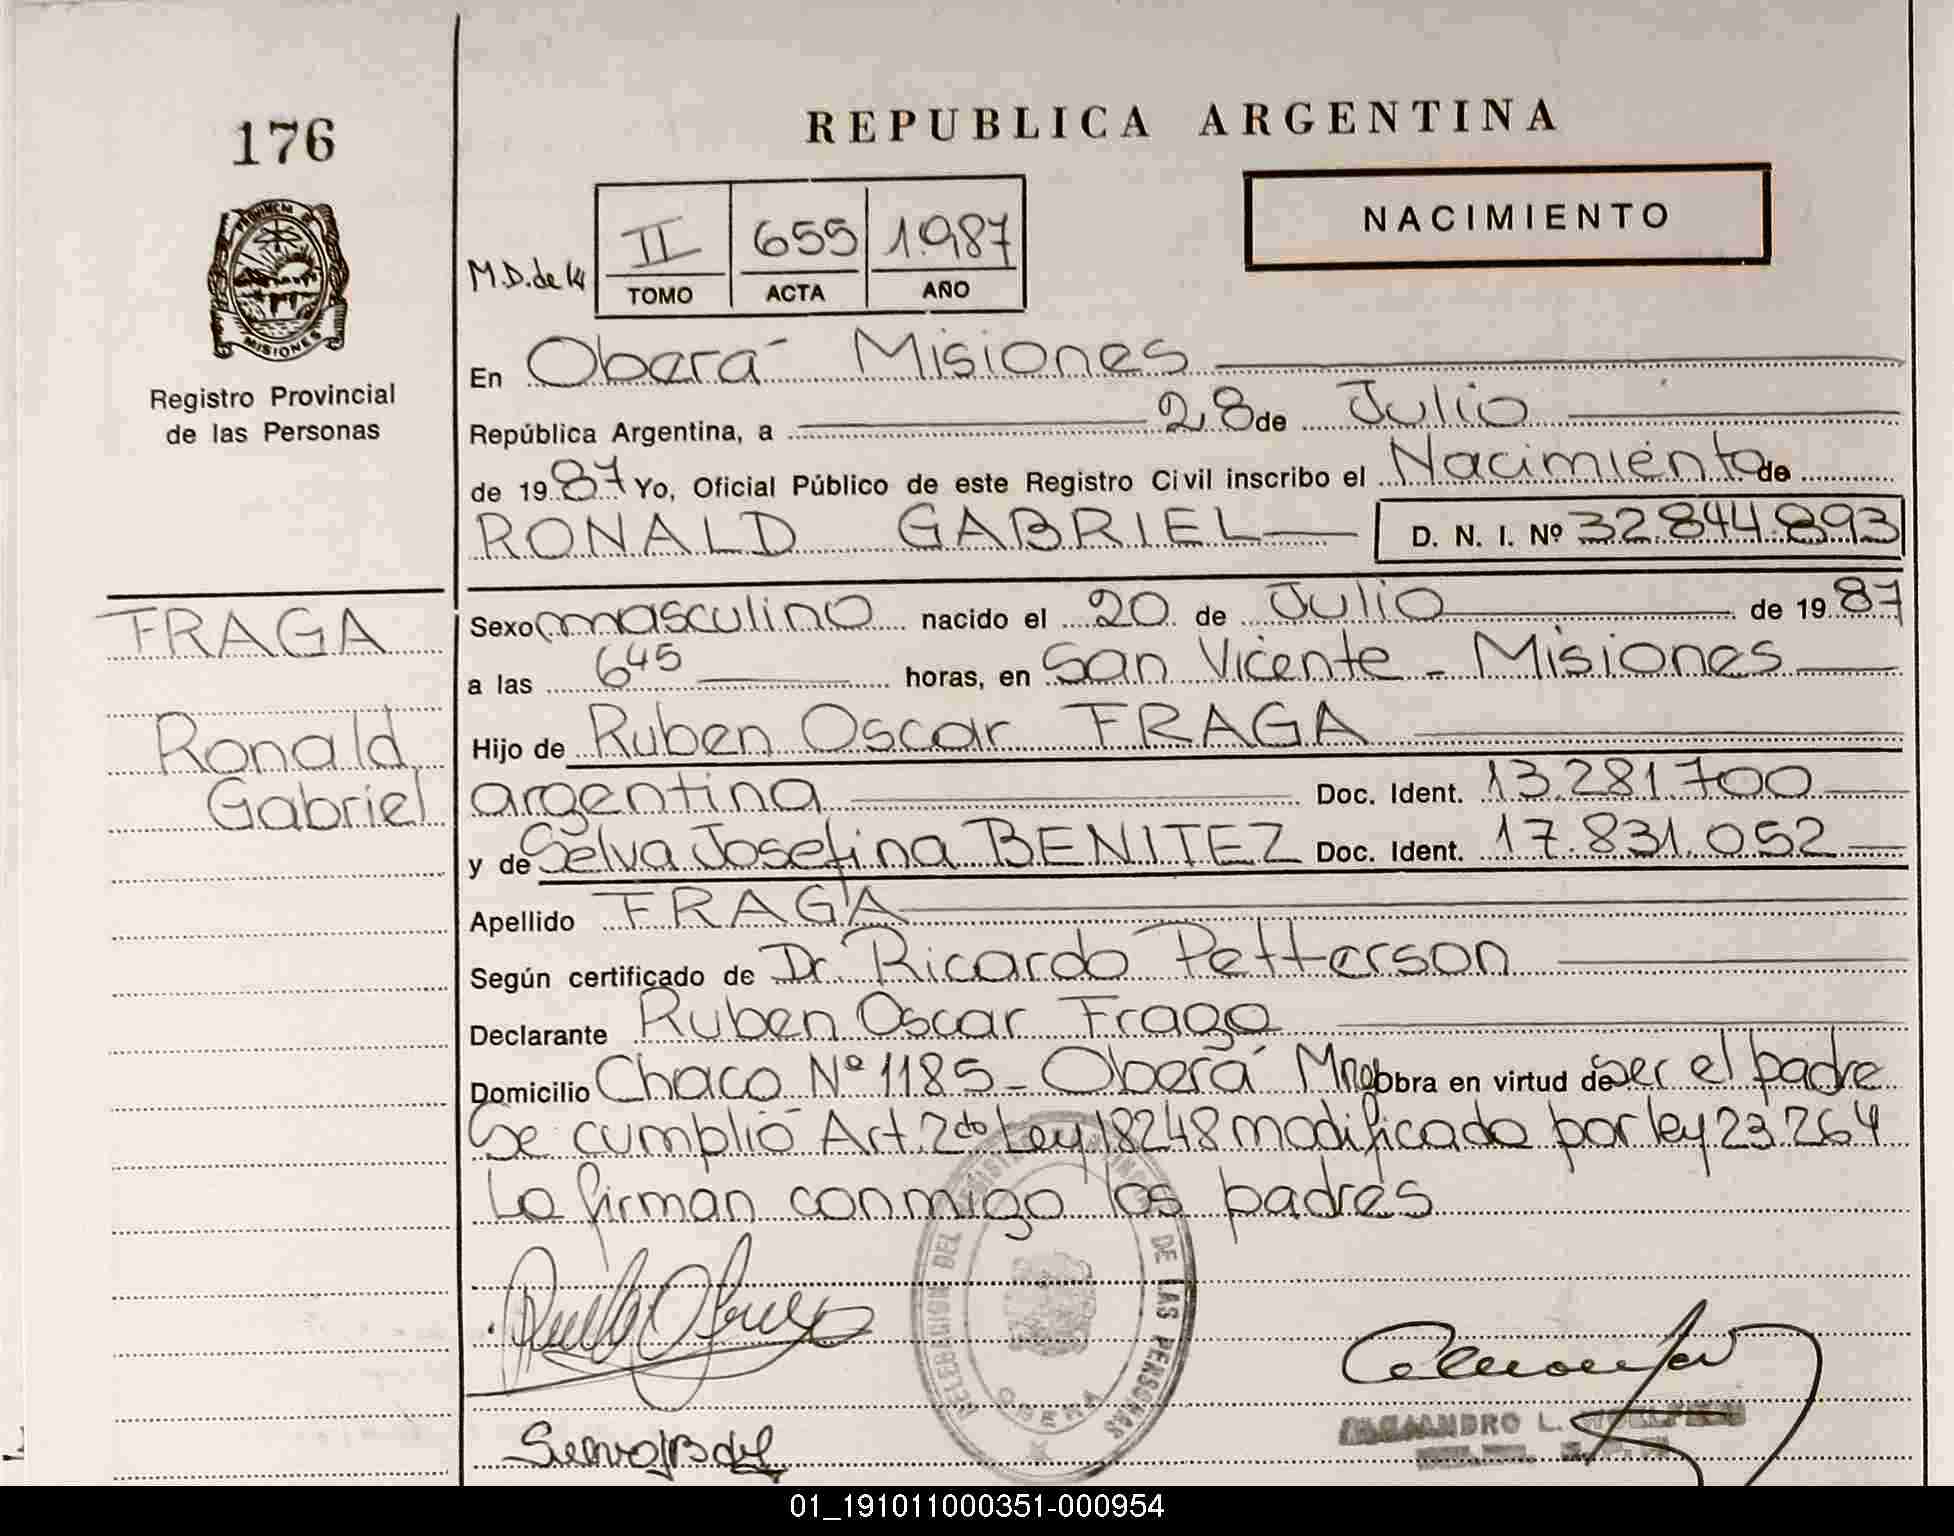 REPUBLICA ARGENTINA
176
NACIMIENTO
M.D. de 14
II 655 1.987
TOMO ACTA AÑO
PROVINCIA DE
MISIONES
Registro Provincial
de las Personas
En Oberá Misiones
República Argentina, a 28 de Julio
de 1987 Yo, Oficial Público de este Registro Civil inscribo el Nacimiento de
RONALD GABRIEL D. N. I. Nº 32.844.893
FRAGA
Ronald
Gabriel
Sexo masculino nacido el 20 de Julio de 1987
a las 645 horas, en San Vicente - Misiones
Hijo de Ruben Oscar FRAGA
argentina Doc. Ident. 13.281.700
y de Selva Josefina BENITEZ Doc. Ident. 17.831.052
Apellido FRAGA
Según certificado de Dr. Ricardo Petterson
Declarante Ruben Oscar Fraga
Domicilio Chaco Nº 1185 - Oberá Mnes Obra en virtud de ser el padre
Se cumplió Art. 2do Ley 18248 modificado por ley 23.264
Lo firman conmigo los padres
DELEGACION DEL REGISTRO DE LAS PERSONAS
OBERA
L.
01_191011000351-000954